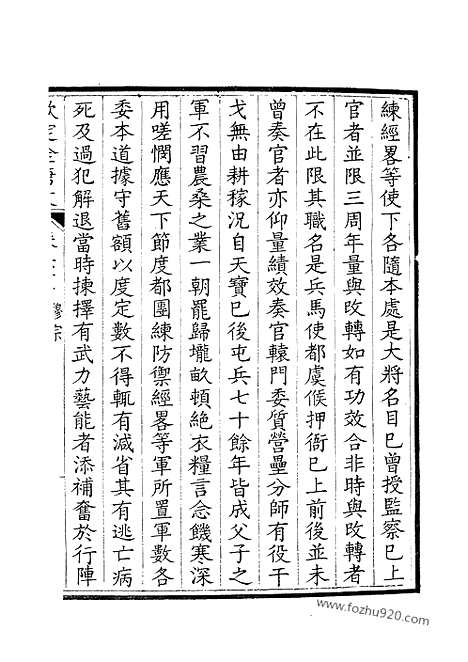 練經畧等使下各隨本處是大將名目已曾授監察已上
官者並限三周年量與改轉如有功效合非時與改轉者
不在此限其職名是兵馬使都虞候押衙已上前後並未
曾奏官者亦仰量績效奏官轅門委質營壘分師有役干
戈無由耕稼況自天寶已後屯兵七十餘年皆成父子之
軍不習農桑之業一朝罷歸壠畝頓絶衣糧言念饑寒深
用嗟憫應天下節度都團練防禦經畧等軍所置軍數各
委本道據守舊額以度定數不得輒有減省其有逃亡病
死及過犯解退當時揀擇有武力藝能者添補奮於行陣
欽定全唐文
穆宗
www.fozhu920.com